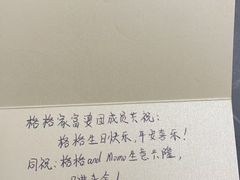 格格家富婆团成员共祝：
格格生日快乐，平安喜乐！
同祝：格格and Momo生意兴隆，
日进斗金！